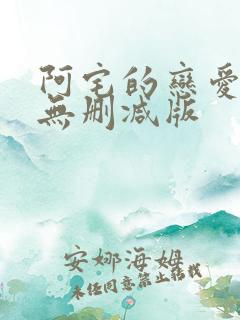 阿宅的戀愛
無删减版
安娜海姆
未经同意禁止转载